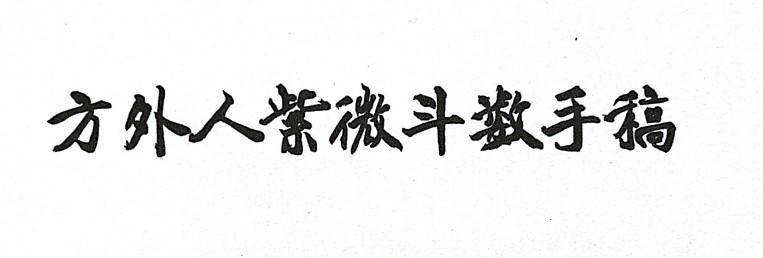 方外人紫微斗数手稿